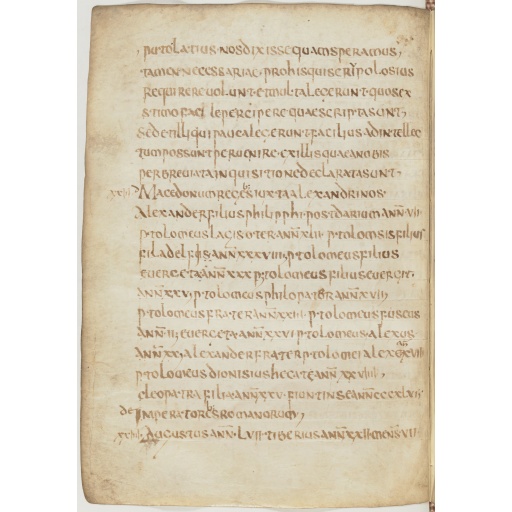 putola tius · nos dixisse quam speramus ,
tamen necessariae · pro his qui scripolosius
requirere uolunt · et multa legerunt · quos ex
stimo facile percipere quae scripta sunt ,
sed et illi qui pauca legerunt · facilius ad intellec
tum possunt peruenire · ex illis quae a nobis
per breuiata inquisitione declarata sunt ,
xxiii Macedonum reges iuxta alexandrinos ·
Alexander filius philipphi · post darium ann · vii
ptolomeus lac is oter ann xlii · ptolomsis filius
filadelfus ann xxxviii · ptolomeus filius
euergeta ann xxx ptolomeus filius euergit ·
ann xxv · ptolomeus philopator ann xvii
ptolomeus frater ann xxiii · ptolomeus fuscus
ann · ii ; euergeta · ann xxvi · ptolomeus · alexus
ann xx ; alexander frater ptolomei alex ann xviii
ptolomeus dionisius hecate ann xxviiii ,
cleopatra filia ann xxv · fiunt in se ann cccxlii
de Imperatoribus romanorum ,
xxiiii Augustus ann · lvii · tiberius ann xxii mens vii ·